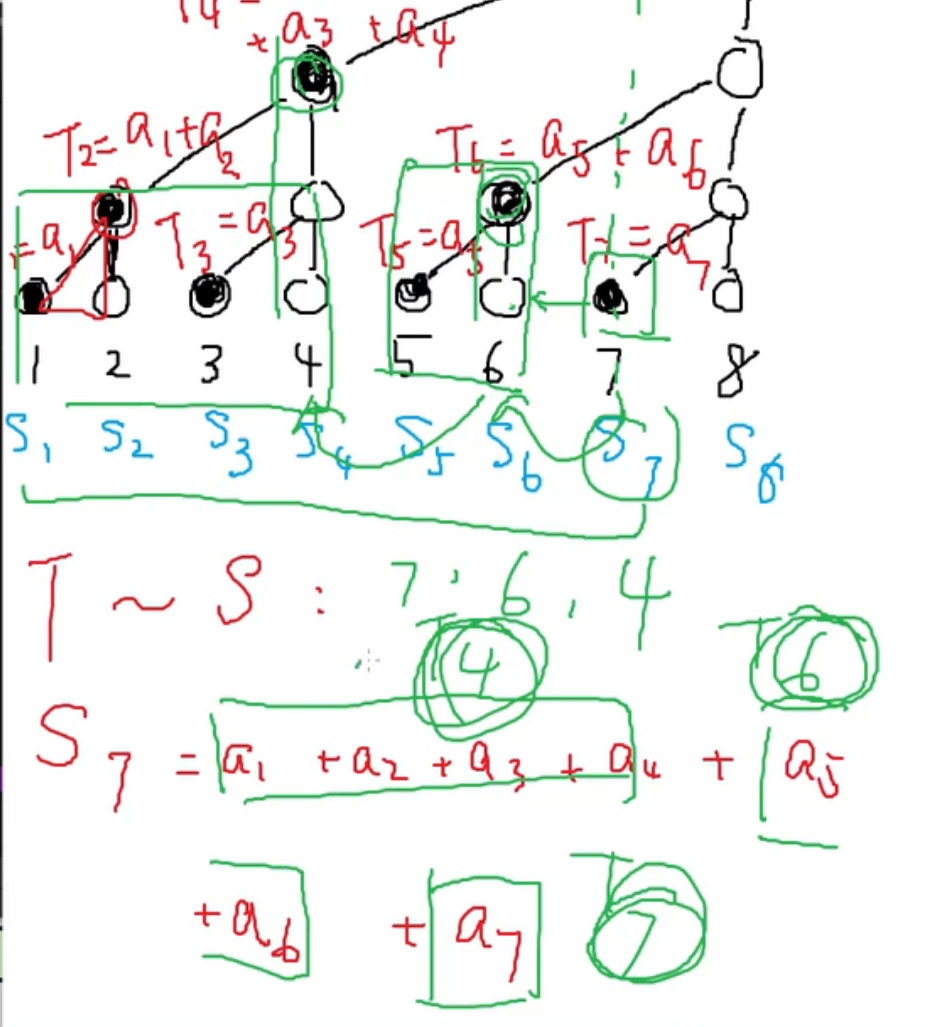 T4 =
+ a3 + a4
T2 = a1 + a2
T6 = a5 + a6
= a1 T3 = a3 T5 = a5 T7 = a7
1 2 3 4 5 6 7 8
S1 S2 S3 S4 S5 S6 S7 S8
T ~ S : 7, 6, 4
T4 T6
S7 = a1 + a2 + a3 + a4 + a5
+ a6 + a7 T7